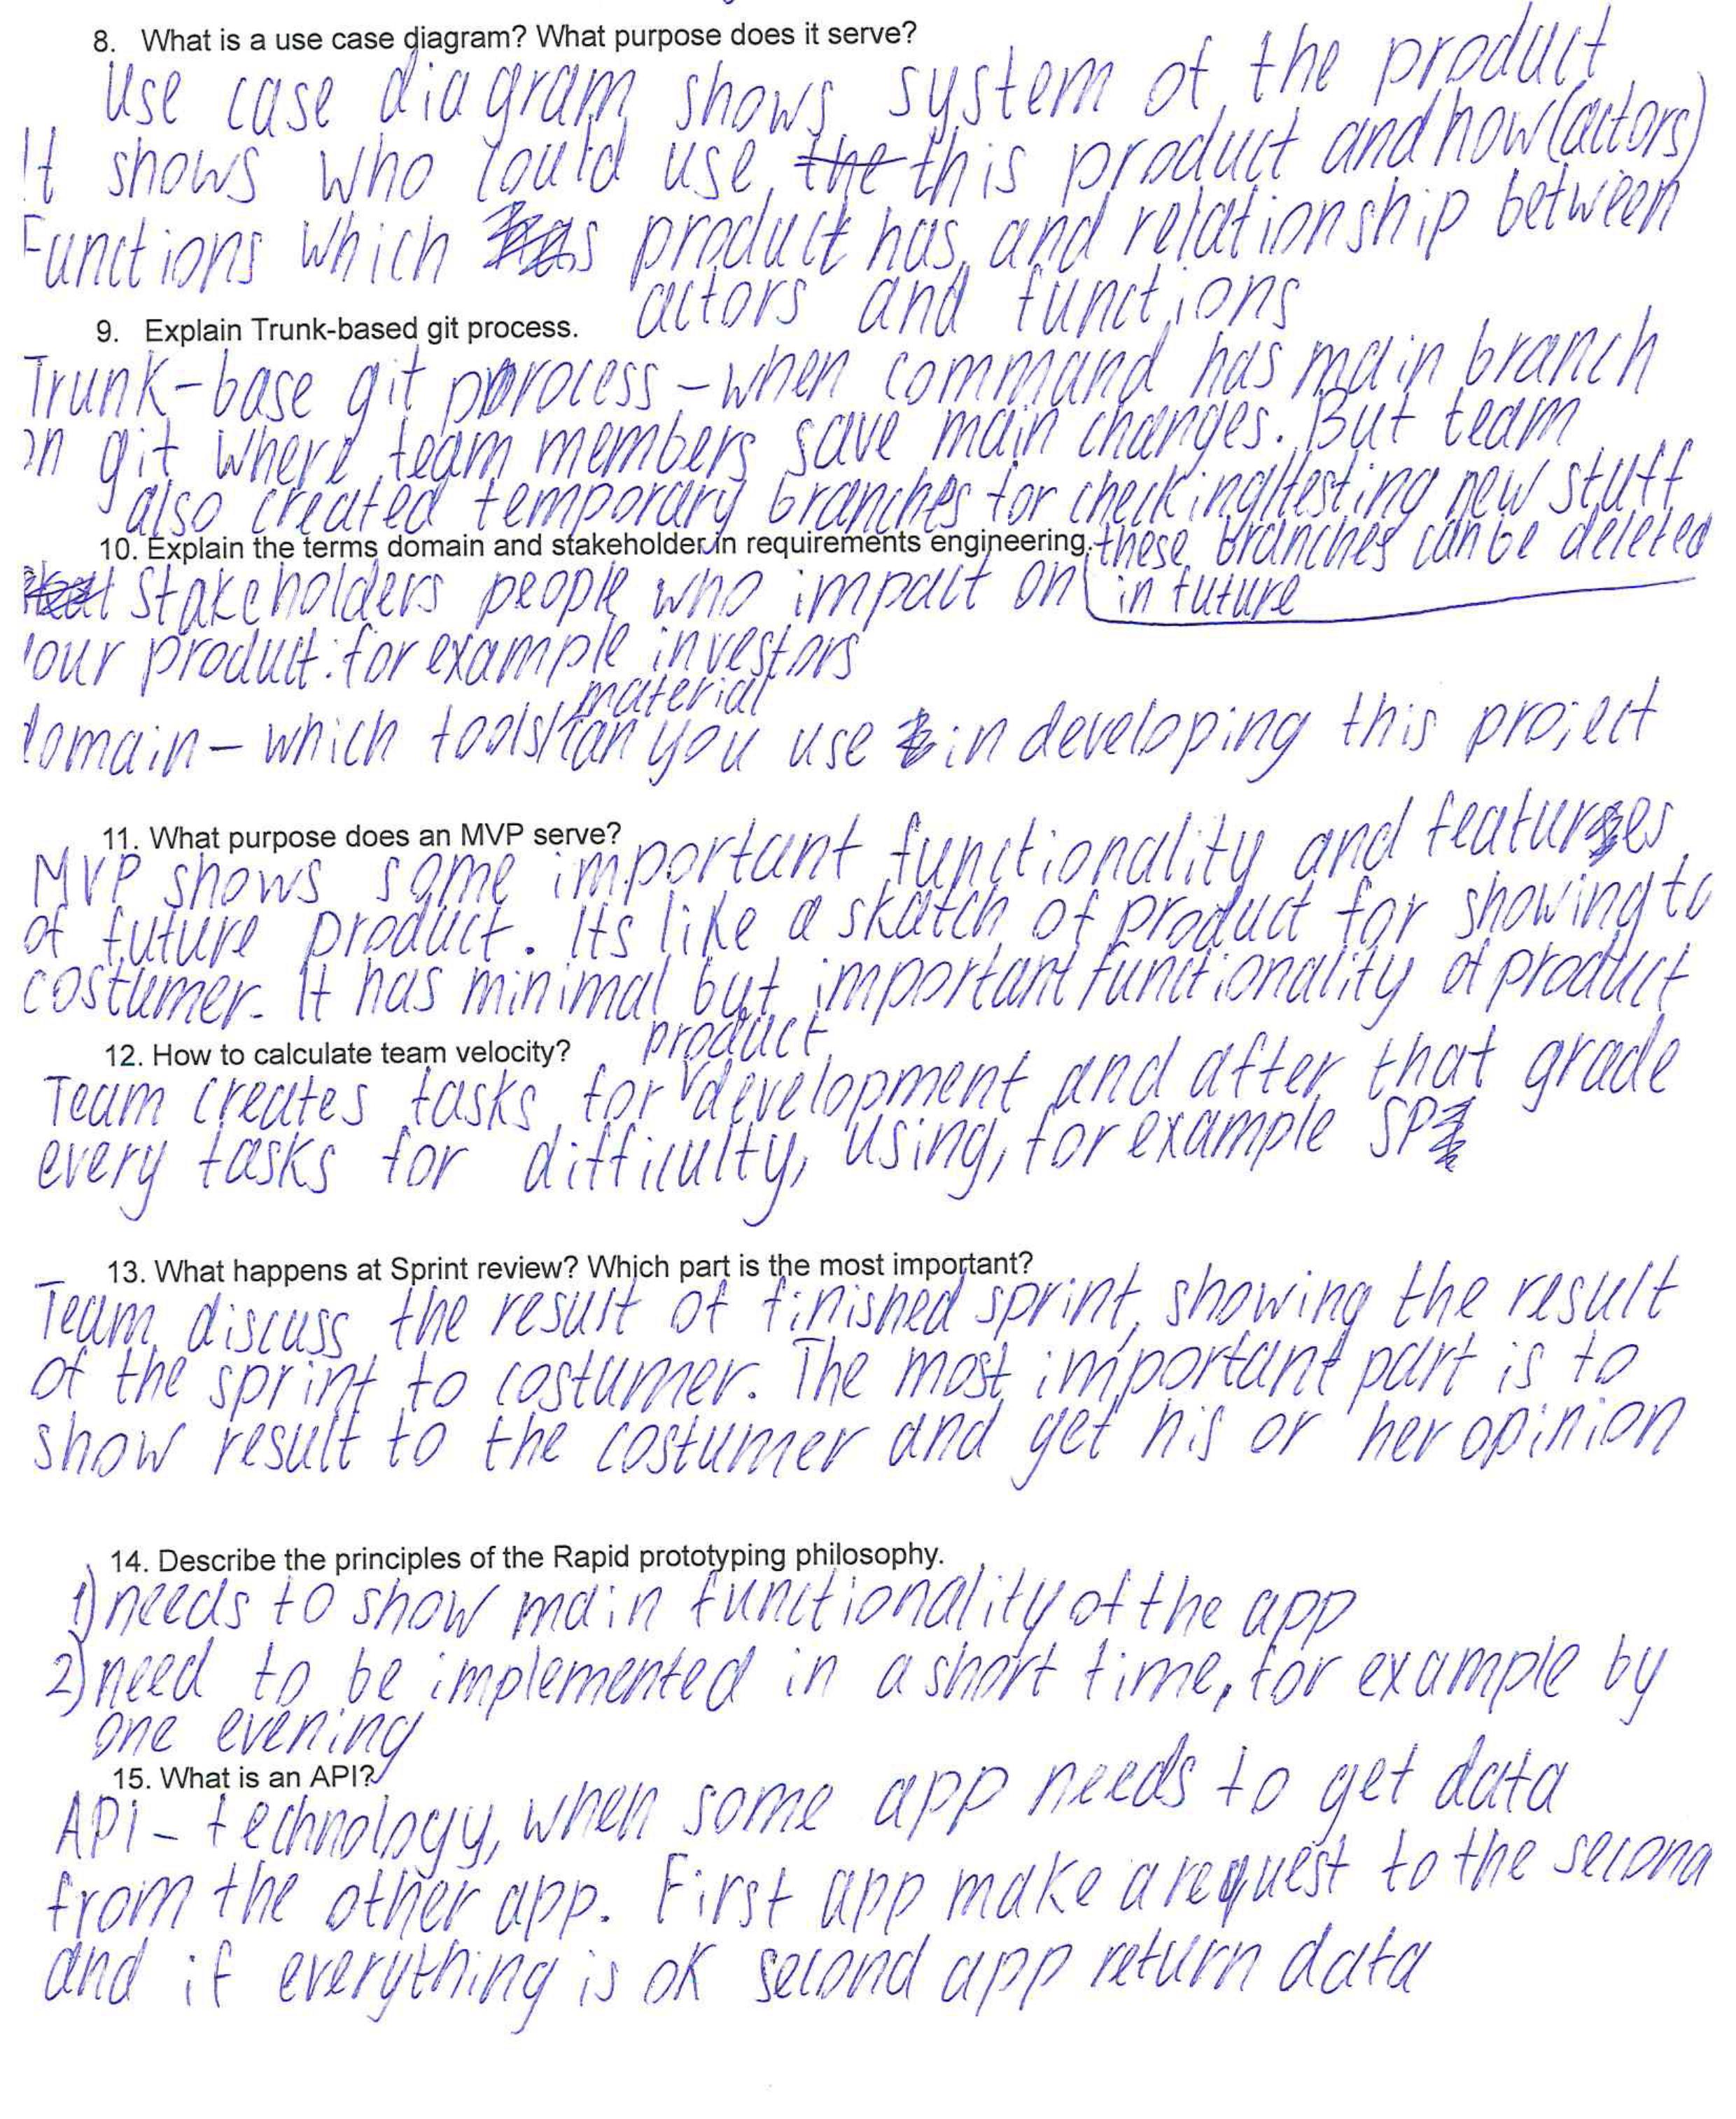 8. What is a use case diagram? What purpose does it serve?
Use case diagram shows system of the product
It shows who could use the this product and how (actors)
Functions which has product has, and relationship between
actors and functions
9. Explain Trunk-based git process.
Trunk-base git process – when command has main branch
on git where team members save main changes. But team
also created temporary branches for checking/testing new stuff
these branches can be deleted
in future
10. Explain the terms domain and stakeholder in requirements engineering.
Stakeholders people who impact on
your product: for example investors
material
domain – which tools/can you use in developing this project
11. What purpose does an MVP serve?
MVP shows some important functionality and features
of future product. Its like a skatch of product for showing to
costumer. It has minimal but important functionality of product
12. How to calculate team velocity?
product
Team creates tasks for development and after that grade
every tasks for difficulty, using, for example SP
13. What happens at Sprint review? Which part is the most important?
Team discuss the result of finished sprint, showing the result
of the sprint to costumer. The most important part is to
show result to the costumer and get his or her opinion
14. Describe the principles of the Rapid prototyping philosophy.
1) needs to show main functionality of the app
2) need to be implemented in a short time, for example by
one evening
15. What is an API?
API – technology, when some app needs to get data
from the other app. First app make a request to the second
and if everything is ok second app return data